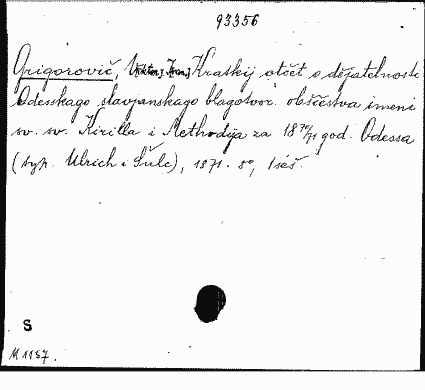 93356
Grigorovič, V[iktor] [Iv.] Kraskij otčet o dějatelnosti
Odesskago slavjanskago blagotvor. obščestva imeni
sv. sv. Kirilla i Methodija za 1870/71 god. Odessa
(typ. Ulrich i Šulc), 1871. 8°, 1 seš.
S
M 1157.